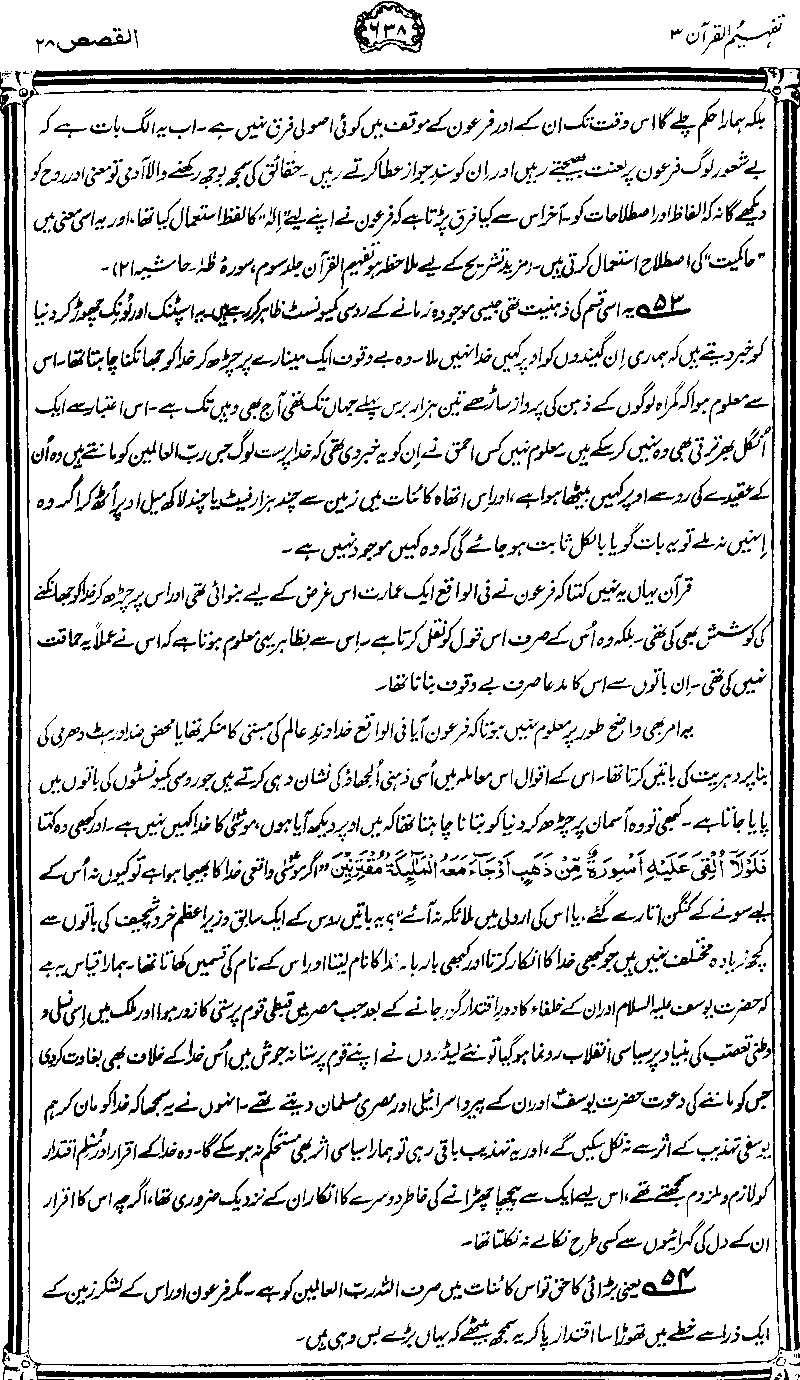 تفہیم القرآن ۳
۶۳۸
القصص ۲۸
بلکہ ہمارا حکم چلے گا اس وقت تک ان کے اور فرعون کے موقف میں کوئی اصولی فرق نہیں ہے۔ اب یہ الگ بات ہے کہ
بے شعور لوگ فرعون پر لعنت بھیجتے رہیں اور اِن کو سندِ جواز عطا کرتے رہیں۔ حقائق کی سمجھ بوجھ رکھنے والا آدمی تو معنی اور روح کو
دیکھے گا نہ کہ الفاظ اور اصطلاحات کو۔ آخر اس سے کیا فرق پڑتا ہے کہ فرعون نے اپنے لیے "الٰہ" کا لفظ استعمال کیا تھا، اور یہ اسی معنی میں
"حاکمیت" کی اصطلاح استعمال کرتی ہیں۔ (مزید تشریح کے لیے ملاحظہ ہو تفہیم القرآن جلد سوم، سورۂ طٰہٰ۔ حاشیہ ۲۱)۔
۵۳ یہ اسی قسم کی ذہنیت تھی جیسی موجودہ زمانے کے روسی کمیونسٹ ظاہر کر رہے ہیں۔ یہ اسپٹنک اور لُونِک چھوڑ کر دنیا
کو خبر دیتے ہیں کہ ہماری اِن گیندوں کو اوپر کہیں خدا نہیں ملا۔ وہ بے وقوف ایک مینارے پر چڑھ کر خدا کو جھانکنا چاہتا تھا۔ اس
سے معلوم ہوا کہ گمراہ لوگوں کے ذہن کی پرواز ساڑھے تین ہزار برس پہلے جہاں تک تھی آج بھی وہیں تک ہے۔ اس اعتبار سے ایک
اُنگل بھر ترقی بھی وہ نہیں کر سکے ہیں۔ معلوم نہیں کس احمق نے اِن کو یہ خبر دی تھی کہ خدا پرست لوگ جس ربّ العالمین کو مانتے ہیں وہ اُن
کے عقیدے کی رو سے اوپر کہیں بیٹھا ہوا ہے، اور اِس اتھاہ کائنات میں زمین سے چند ہزار فیٹ یا چند لاکھ میل اوپر اُٹھ کر اگر وہ
اِنہیں نہ ملے تو یہ بات گویا بالکل ثابت ہو جائے گی کہ وہ کہیں موجود نہیں ہے۔
قرآن یہاں یہ نہیں کہتا کہ فرعون نے فی الواقع ایک عمارت اس غرض کے لیے بنوائی تھی اور اس پر چڑھ کر خدا کو جھانکنے
کی کوشش بھی کی تھی۔ بلکہ وہ اُس کے صرف اس قول کو نقل کرتا ہے۔ اِس سے بظاہر یہی معلوم ہوتا ہے کہ اس نے عملاً یہ حماقت
نہیں کی تھی۔ اِن باتوں سے اس کا مدعا صرف بے وقوف بنانا تھا۔
یہ امر بھی واضح طور پر معلوم نہیں ہوتا کہ فرعون آیا فی الواقع خداوندِ عالم کی ہستی کا منکر تھا یا محض ضد اور ہٹ دھرمی کی
بنا پر دہریت کی باتیں کرتا تھا۔ اس کے اقوال اس معاملہ میں اُسی ذہنی اُلجھاؤ کی نشان دہی کرتے ہیں جو روسی کمیونسٹوں کی باتوں میں
پایا جاتا ہے۔ کبھی تو وہ آسمان پر چڑھ کر دنیا کو بتانا چاہتا تھا کہ میں اوپر دیکھ آیا ہوں، موسٰیؑ کا خدا کہیں نہیں ہے۔ اور کبھی وہ کہتا
فَلَوْلَآ اُلْقِیَ عَلَیْہِ اَسْوِرَۃٌ مِّنْ ذَھَبٍ اَوْجَآءَ مَعَہُ الْمَلٰٓئِکَۃُ مُقْتَرِنِیْنَ "اگر موسیٰؑ واقعی خدا کا بھیجا ہوا ہے تو کیوں نہ اُس کے
لیے سونے کے کنگن اُتارے گئے، یا اس کی اردلی میں ملائکہ نہ آئے"؟ یہ باتیں روس کے ایک سابق وزیر اعظم خروشچیف کی باتوں سے
کچھ زیادہ مختلف نہیں ہیں جو کبھی خدا کا انکار کرتا اور کبھی بار بار خدا کا نام لیتا اور اس کے نام کی قسمیں کھاتا تھا۔ ہمارا قیاس یہ ہے
کہ حضرت یوسف علیہ السلام اور ان کے خلفاء کا دورِ اقتدار گزر جانے کے بعد جب مصر میں قبطی قوم پرستی کا زور ہوا اور ملک میں اِسی نسلی و
وطنی تعصب کی بنیاد پر سیاسی انقلاب رونما ہو گیا تو نئے لیڈروں نے اپنے قوم پرستانہ جوش میں اُس خدا کے خلاف بھی بغاوت کر دی
جس کو ماننے کی دعوت حضرت یوسفؑ اور ان کے پیرو اسرائیلی اور مصری مسلمان دیتے تھے۔ انہوں نے یہ سمجھا کہ خدا کو مان کر ہم
یوسفی تہذیب کے اثر سے نہ نکل سکیں گے، اور یہ تہذیب باقی رہی تو ہمارا سیاسی اثر بھی مستحکم نہ ہو سکے گا۔ وہ خدا کے اقرار اور مُسلِم اقتدار
کو لازم و ملزوم سمجھتے تھے، اس لیے ایک سے پیچھا چھڑانے کی خاطر دوسرے کا انکار ان کے نزدیک ضروری تھا، اگرچہ اس کا اقرار
ان کے دل کی گہرائیوں سے کسی طرح نکالے نہ نکلتا تھا۔
۵۴ یعنی بڑائی کا حق تو اس کائنات میں صرف اللہ رب العالمین کو ہے۔ مگر فرعون اور اس کے لشکر زمین کے
ایک ذرا سے خطے میں تھوڑا سا اقتدار پا کر یہ سمجھ بیٹھے کہ یہاں بڑے بس وہی ہیں۔